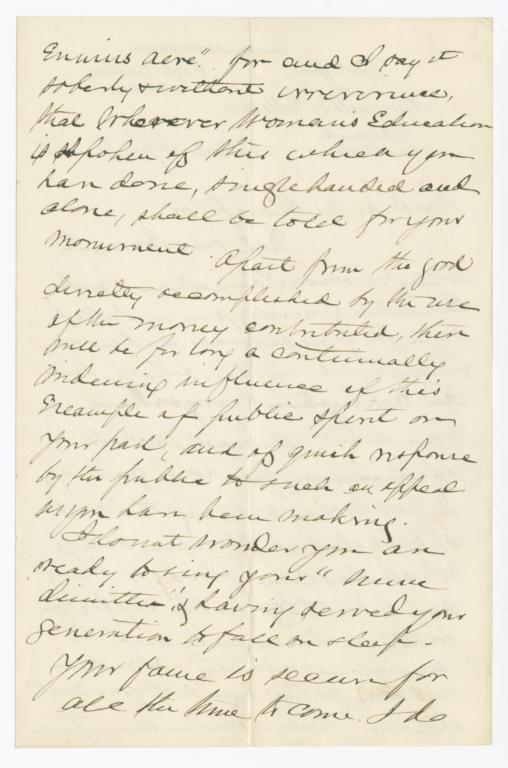 ennius aere". for and I say it
soberly & without irreverence,
that Wherever Woman's Education
is spoken of this which you
have done, single handed and
alone, shall be told for your
monument. Apart from the good
directly accomplished by the use
of the money contributed, there
will be for long a continually
widening influence of this
Example of public spirit on
your part, and of quick response
by the public to such an appeal
as you have been making.
I do not wonder you are
ready to sing your "Nunc
dimittis" & having served your
generation to fall on sleep.
Your fame is secure for
all the time to come. I do